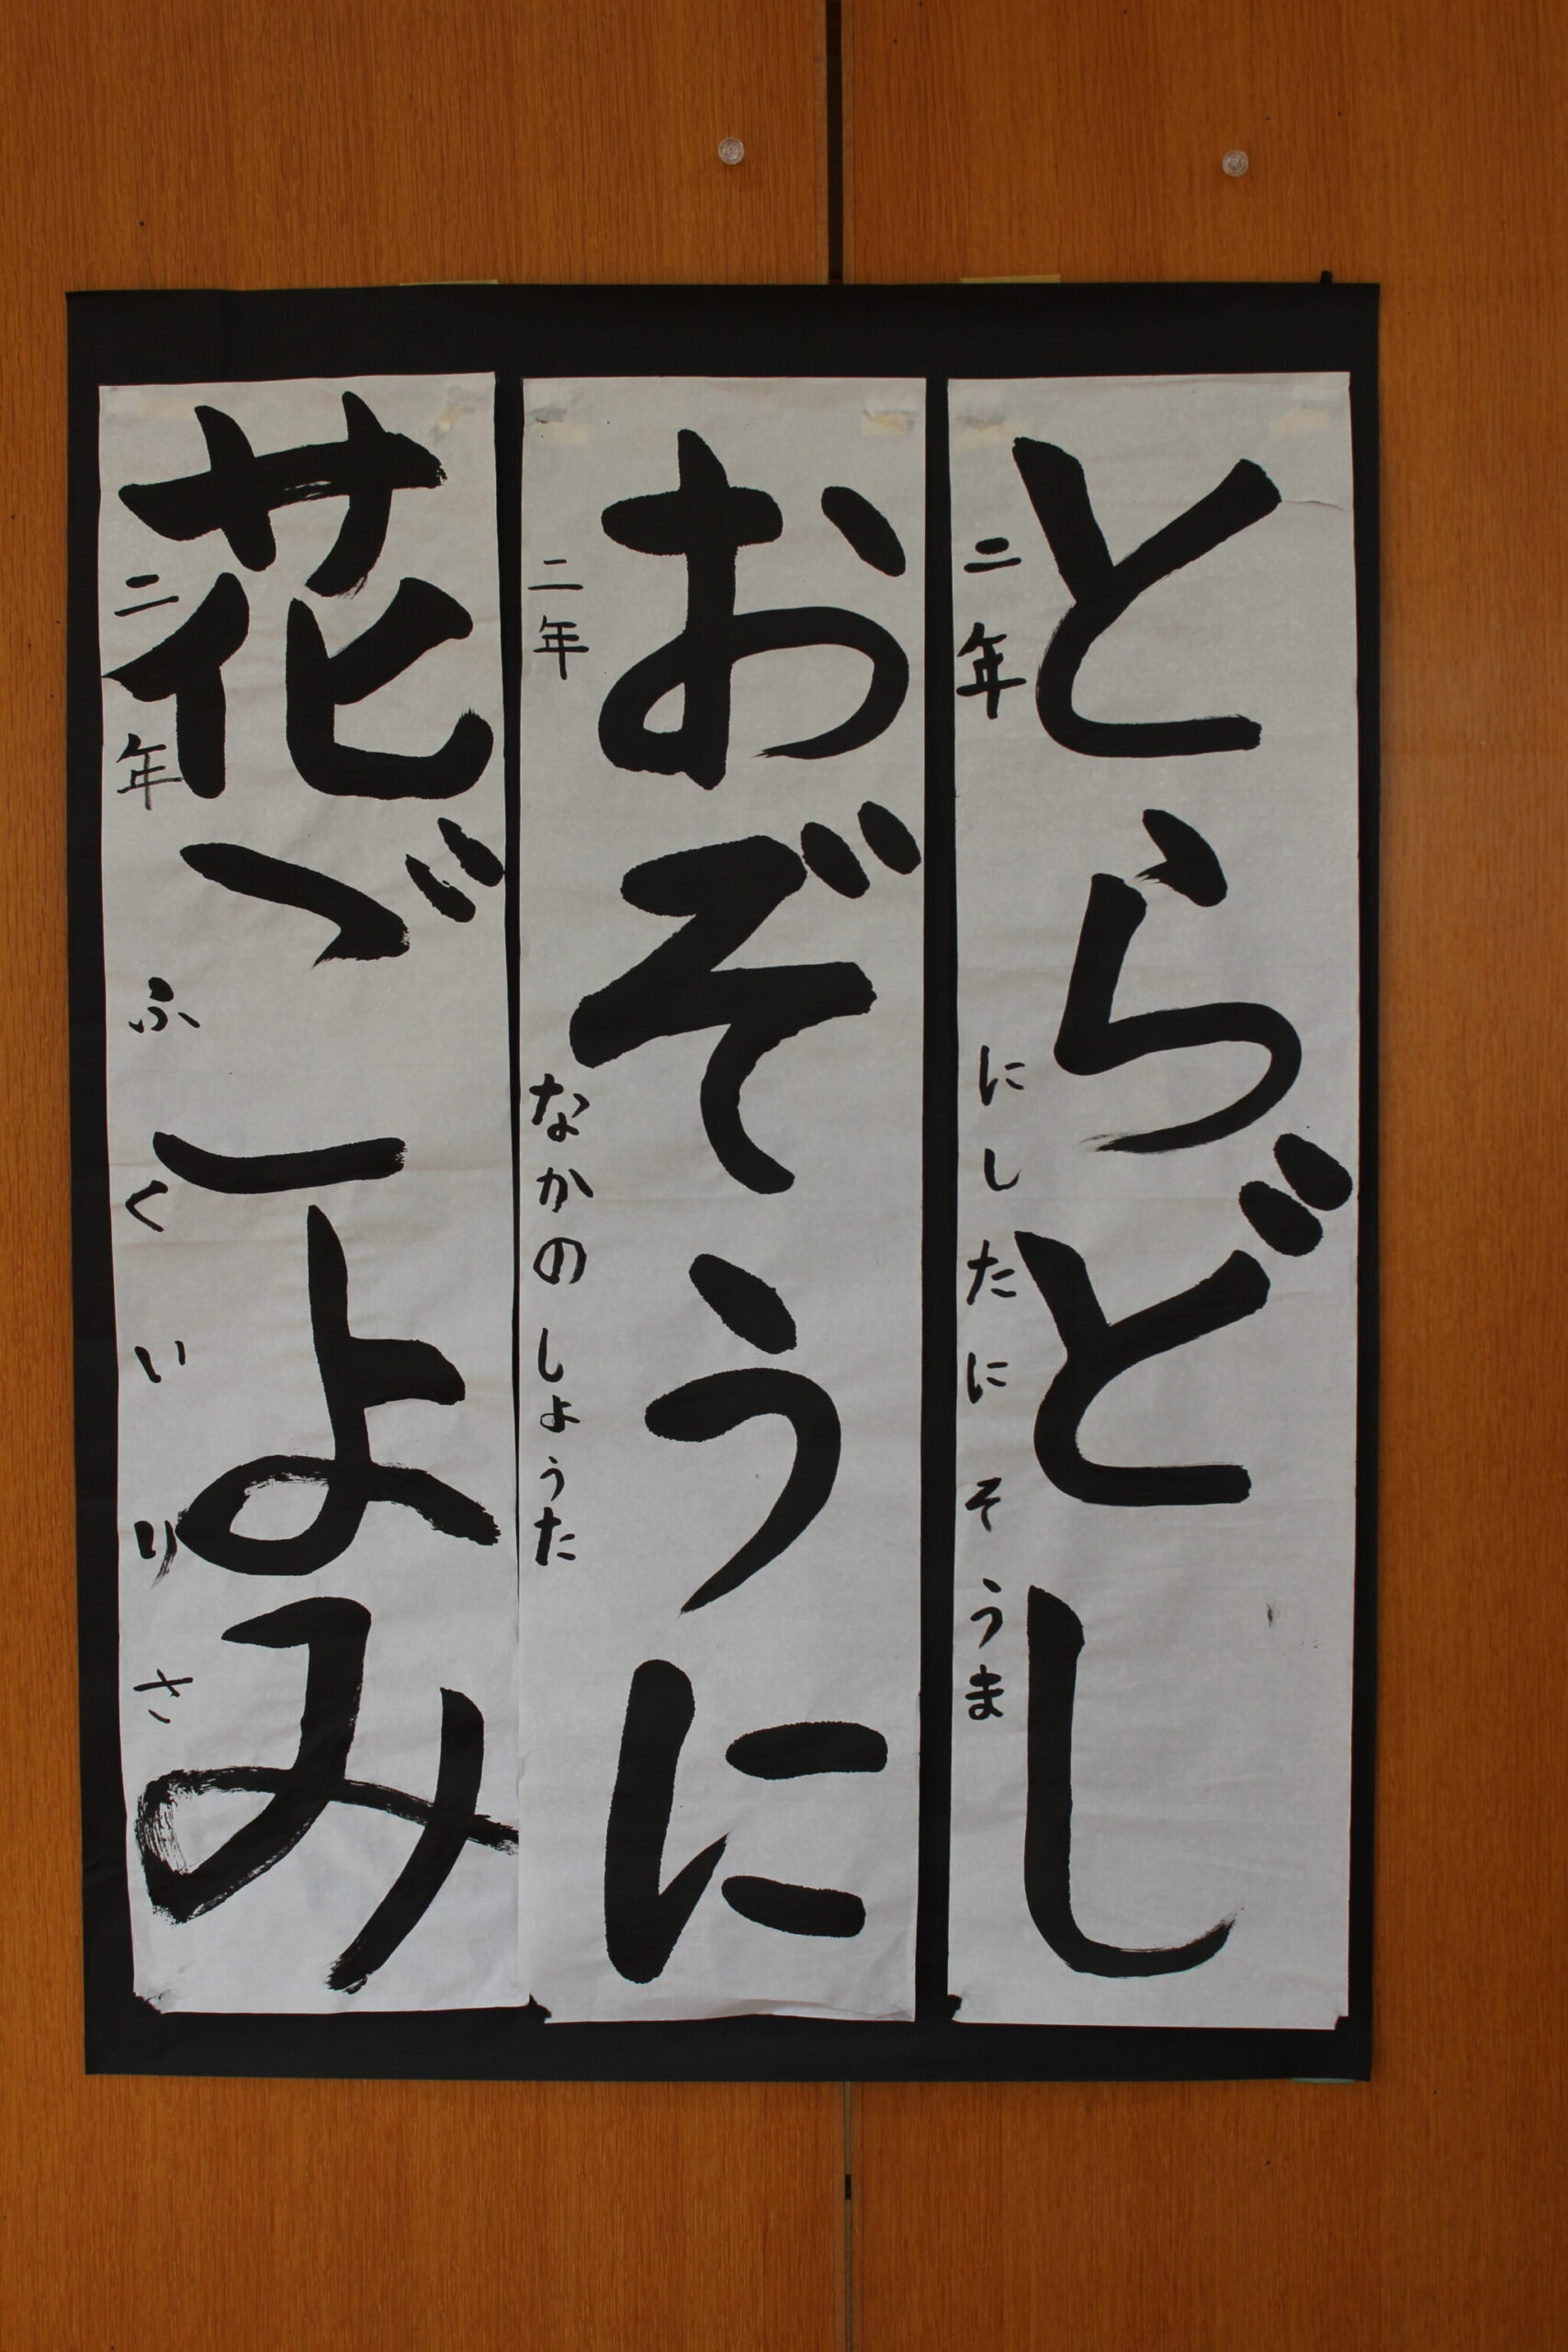 とらどし
二年 にしたに そうま
おぞうに
二年 なかの しょうた
花ごよみ
二年 ふくい りさ